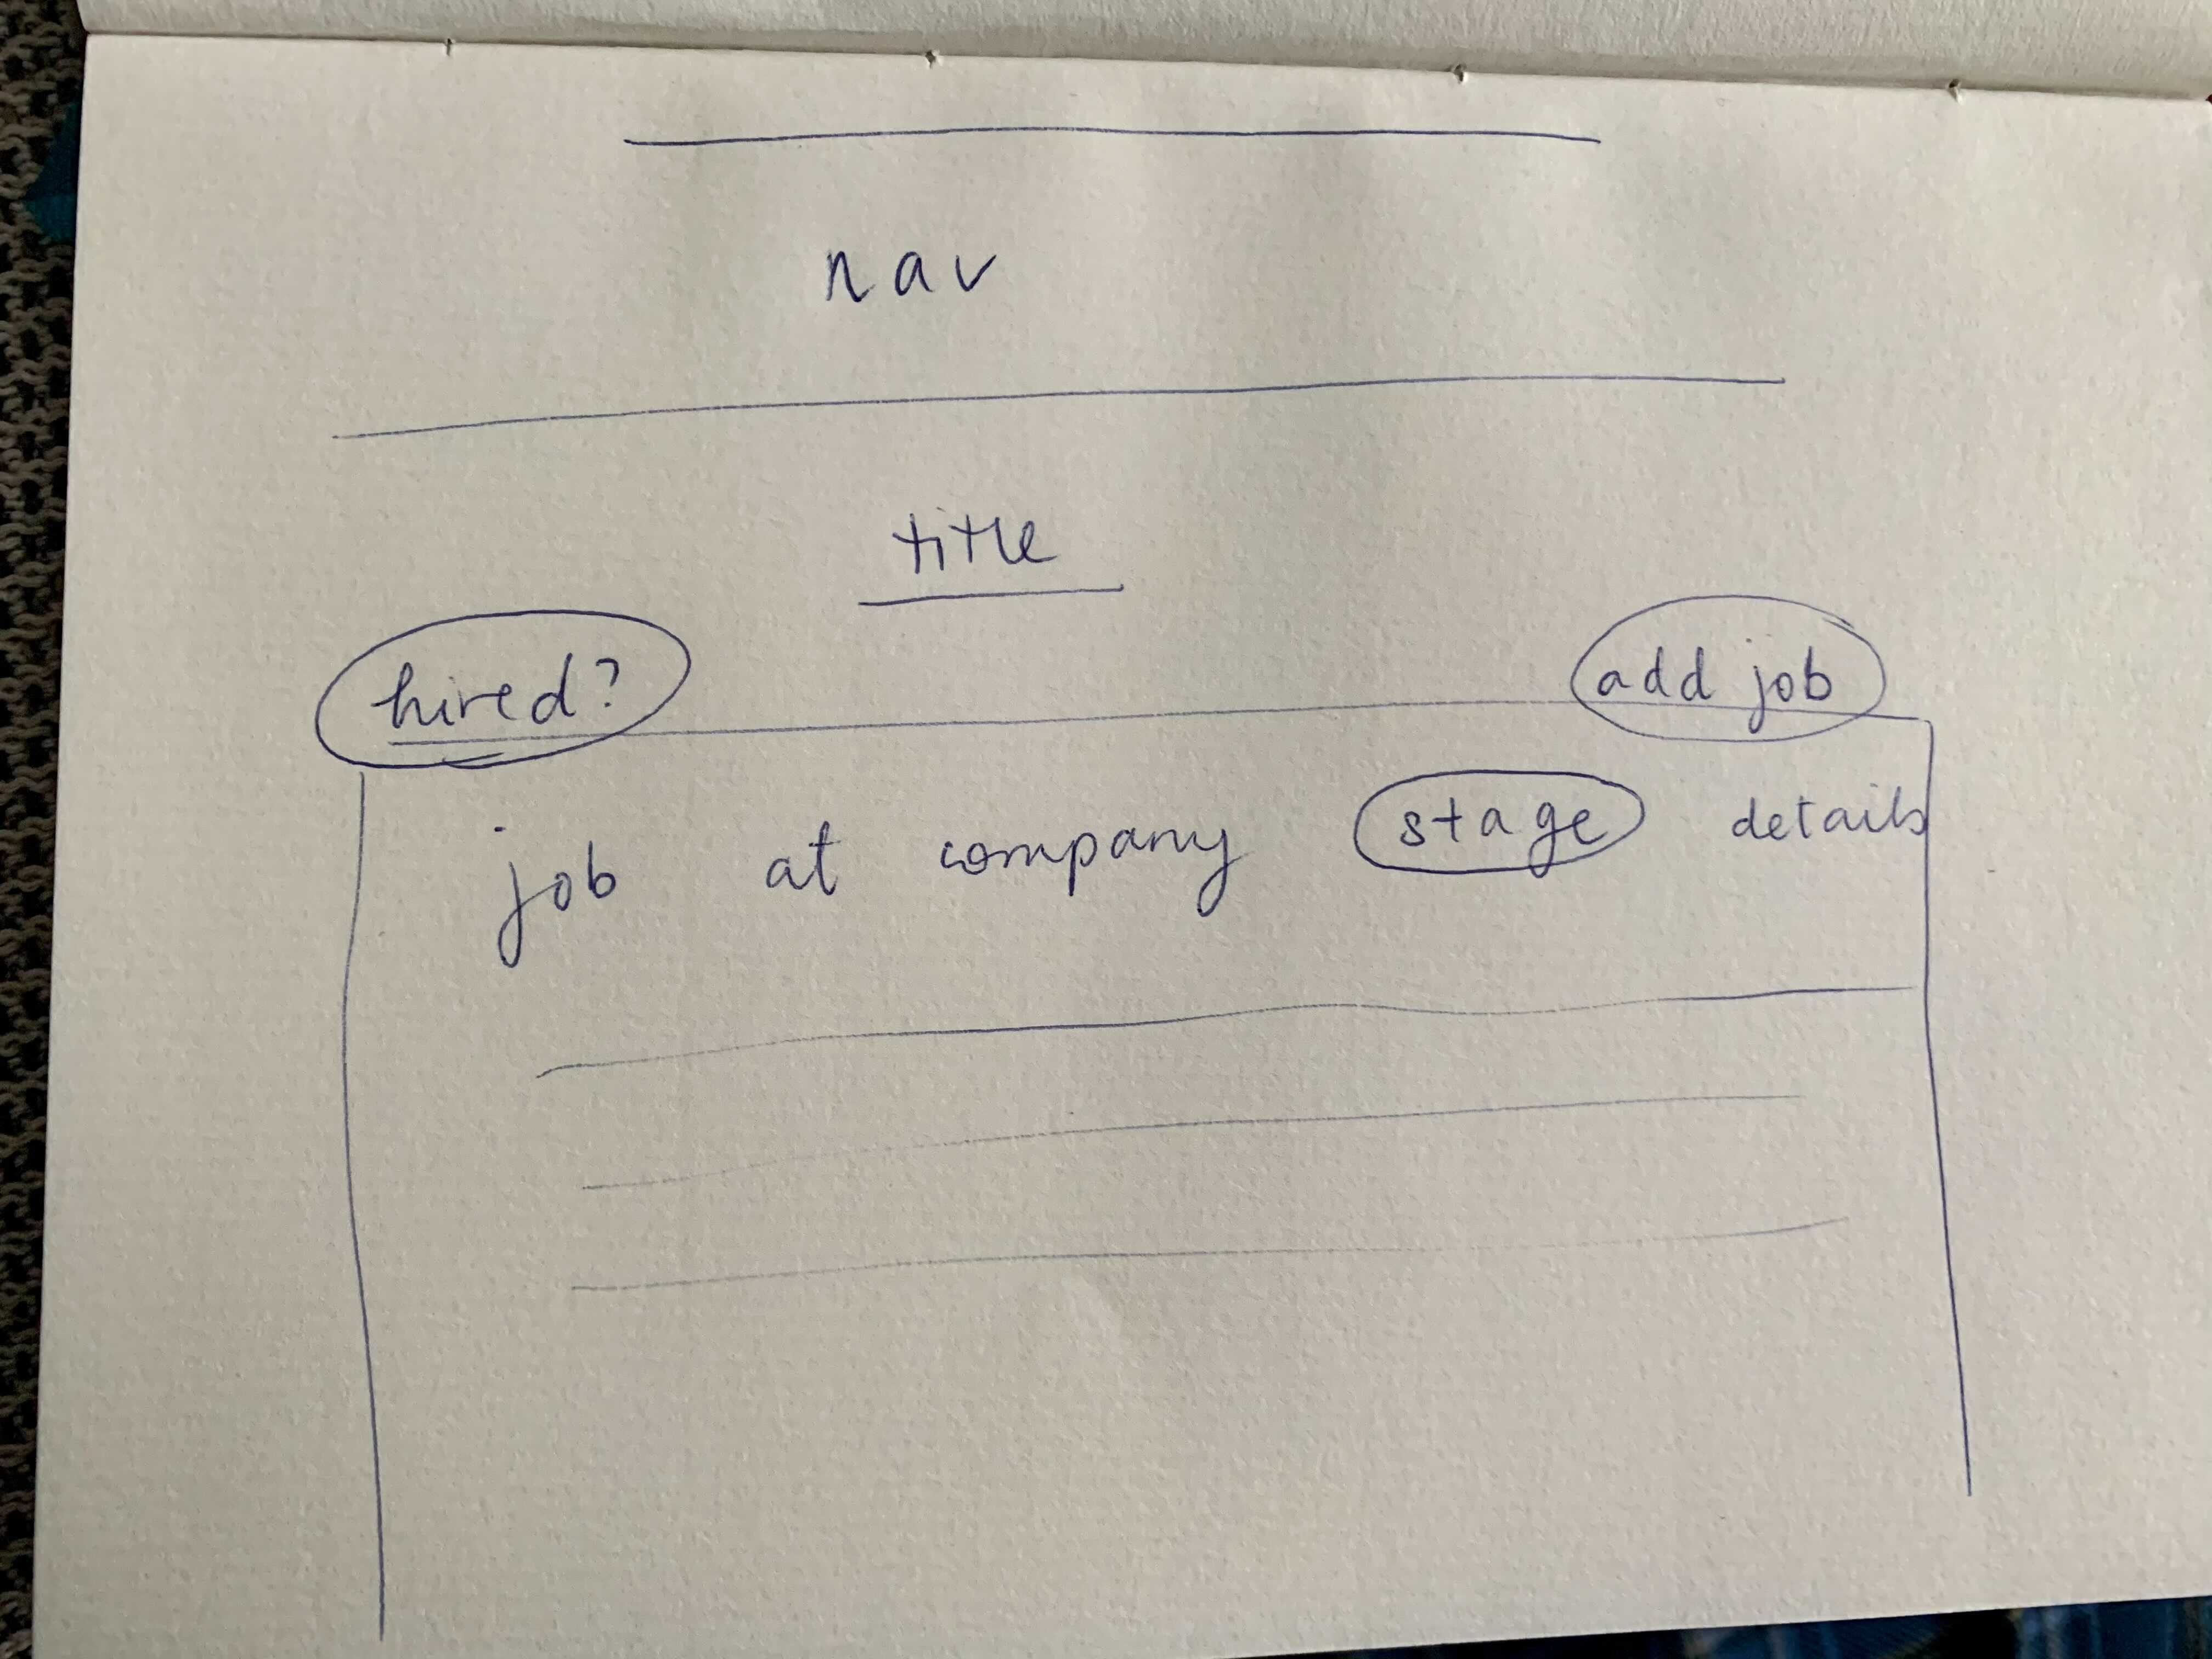 nav
title
hired? add job
job at company stage details